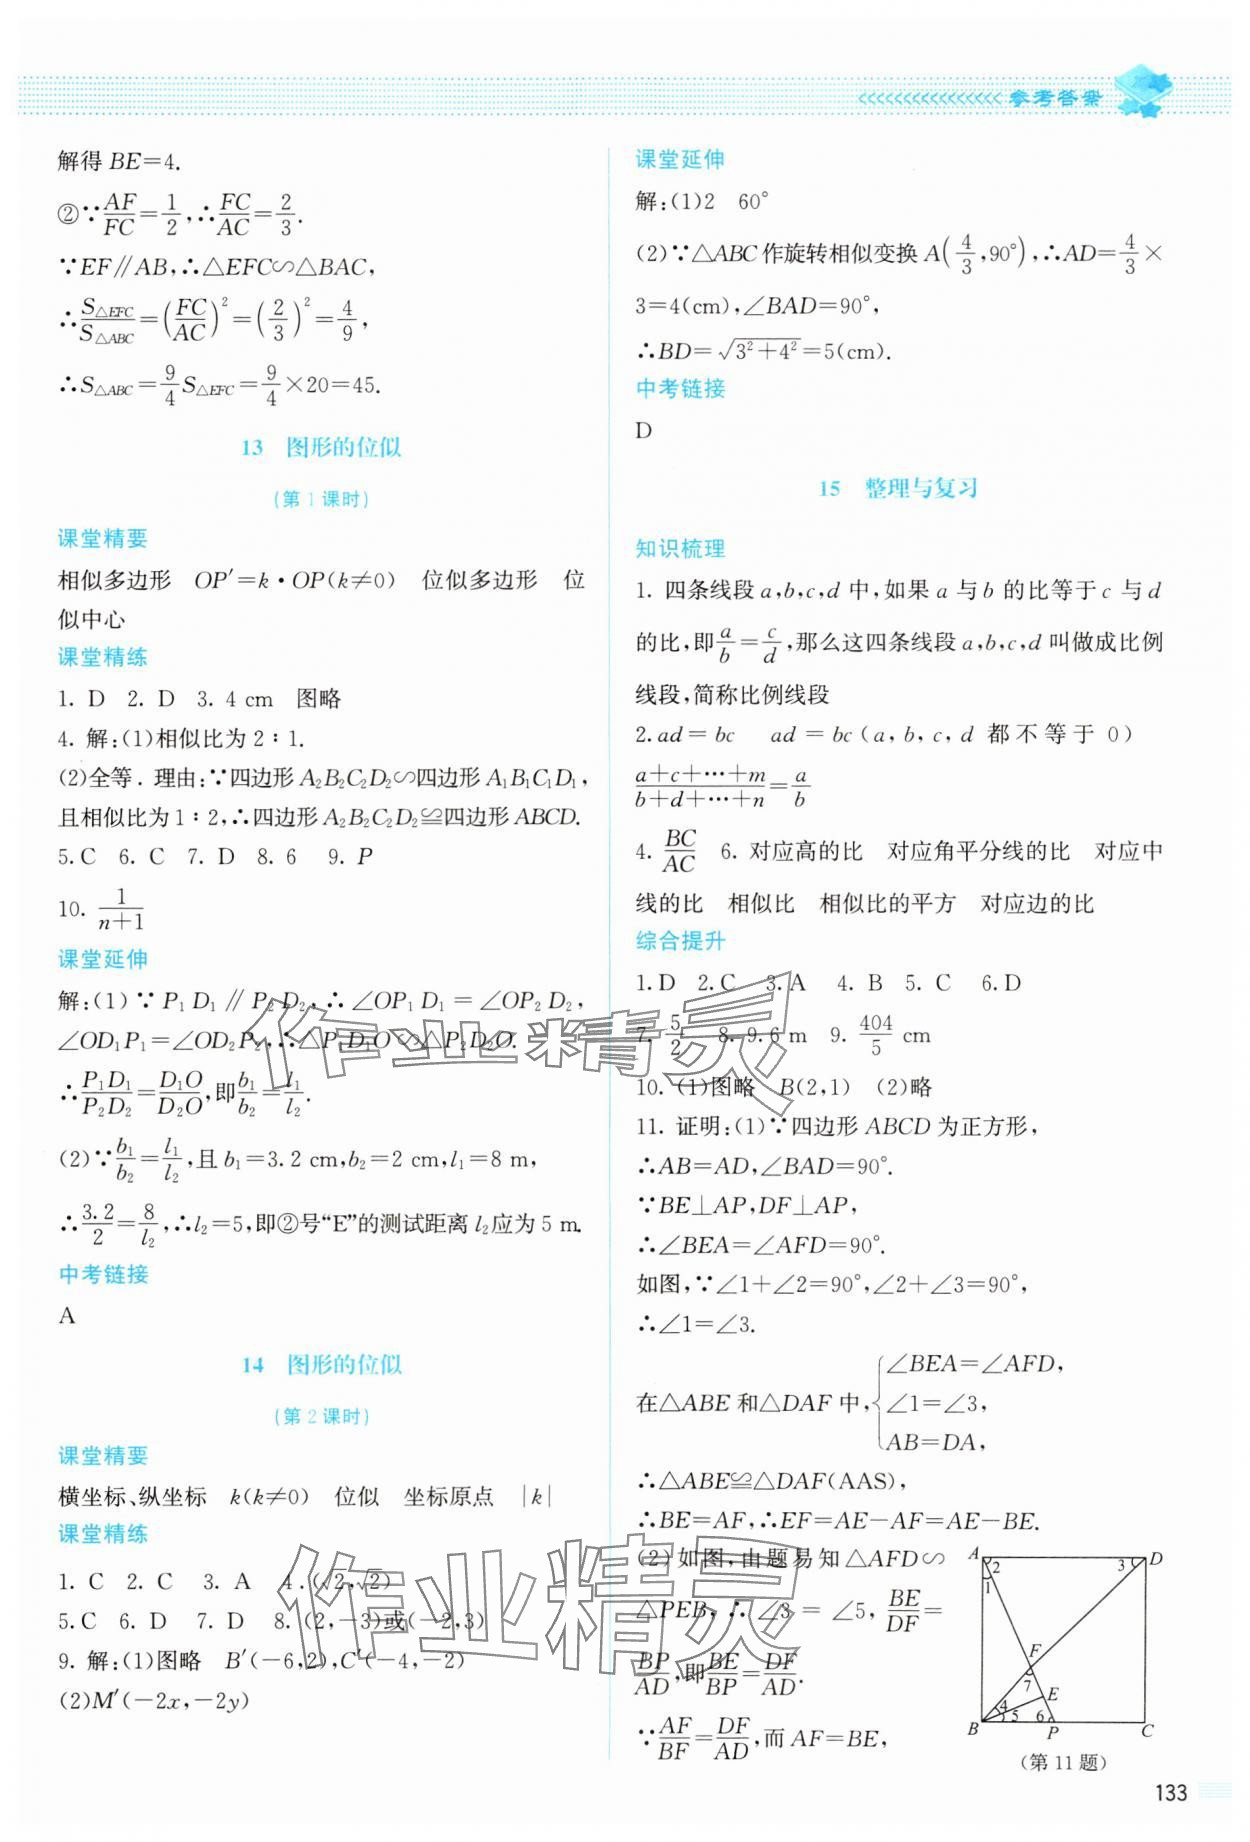 参考答案
解得BE=4.
②∵AF/FC=1/2,∴FC/AC=2/3.
∵EF∥AB,∴△EFC∽△BAC,
∴S△EFC/S△ABC=(FC/AC)²=(2/3)²=4/9,
∴S△ABC=9/4 S△EFC=9/4×20=45.
13 图形的位似
(第1课时)
课堂精要
相似多边形 OP′=k·OP(k≠0) 位似多边形 位
似中心
课堂精练
1. D 2. D 3. 4 cm 图略
4. 解:(1)相似比为2∶1.
(2)全等. 理由:∵四边形A₂B₂C₂D₂∽四边形A₁B₁C₁D₁,
且相似比为1∶2,∴四边形A₂B₂C₂D₂≌四边形ABCD.
5. C 6. C 7. D 8. 6 9. P
10. 1/(n+1)
课堂延伸
解:(1)∵P₁D₁∥P₂D₂,∴∠OP₁D₁=∠OP₂D₂,
∠OD₁P₁=∠OD₂P₂,∴△P₁D₁O∽△P₂D₂O.
∴P₁D₁/P₂D₂=D₁O/D₂O,即b₁/b₂=l₁/l₂.
(2)∵b₁/b₂=l₁/l₂,且b₁=3.2 cm,b₂=2 cm,l₁=8 m,
∴3.2/2=8/l₂,∴l₂=5,即②号“E”的测试距离l₂应为5 m.
中考链接
A
14 图形的位似
(第2课时)
课堂精要
横坐标、纵坐标 k(k≠0) 位似 坐标原点 |k|
课堂精练
1. C 2. C 3. A 4. (√2,√2)
5. C 6. D 7. D 8. (2,-3)或(-2,3)
9. 解:(1)图略 B′(-6,2),C′(-4,-2)
(2)M′(-2x,-2y)
课堂延伸
解:(1)2 60°
(2)∵△ABC作旋转相似变换A(4/3,90°),∴AD=4/3×
3=4(cm),∠BAD=90°,
∴BD=√(3²+4²)=5(cm).
中考链接
D
15 整理与复习
知识梳理
1. 四条线段a,b,c,d中,如果a与b的比等于c与d
的比,即a/b=c/d,那么这四条线段a,b,c,d叫做成比例
线段,简称比例线段
2. ad=bc ad=bc(a,b,c,d都不等于0)
(a+c+…+m)/(b+d+…+n)=a/b
4. BC/AC 6. 对应高的比 对应角平分线的比 对应中
线的比 相似比 相似比的平方 对应边的比
综合提升
1. D 2. C 3. A 4. B 5. C 6. D
7. 5/2 8. 9.6 m 9. 404/5 cm
10. (1)图略 B(2,1) (2)略
11. 证明:(1)∵四边形ABCD为正方形,
∴AB=AD,∠BAD=90°.
∵BE⊥AP,DF⊥AP,
∴∠BEA=∠AFD=90°.
如图,∵∠1+∠2=90°,∠2+∠3=90°,
∴∠1=∠3.
在△ABE和△DAF中,{∠BEA=∠AFD,
∠1=∠3,
AB=DA,
∴△ABE≌△DAF(AAS),
∴BE=AF,∴EF=AE-AF=AE-BE.
(2)如图,由题易知△AFD∽
△PEB,∴∠3=∠5,BE/DF=
BP/AD,即BE/BP=DF/AD.
∵AF/BF=DF/AD,而AF=BE,
A 2 1 3 D
F 7
E
4 5 6
B P C
(第11题)
133
作业精灵
作业精灵